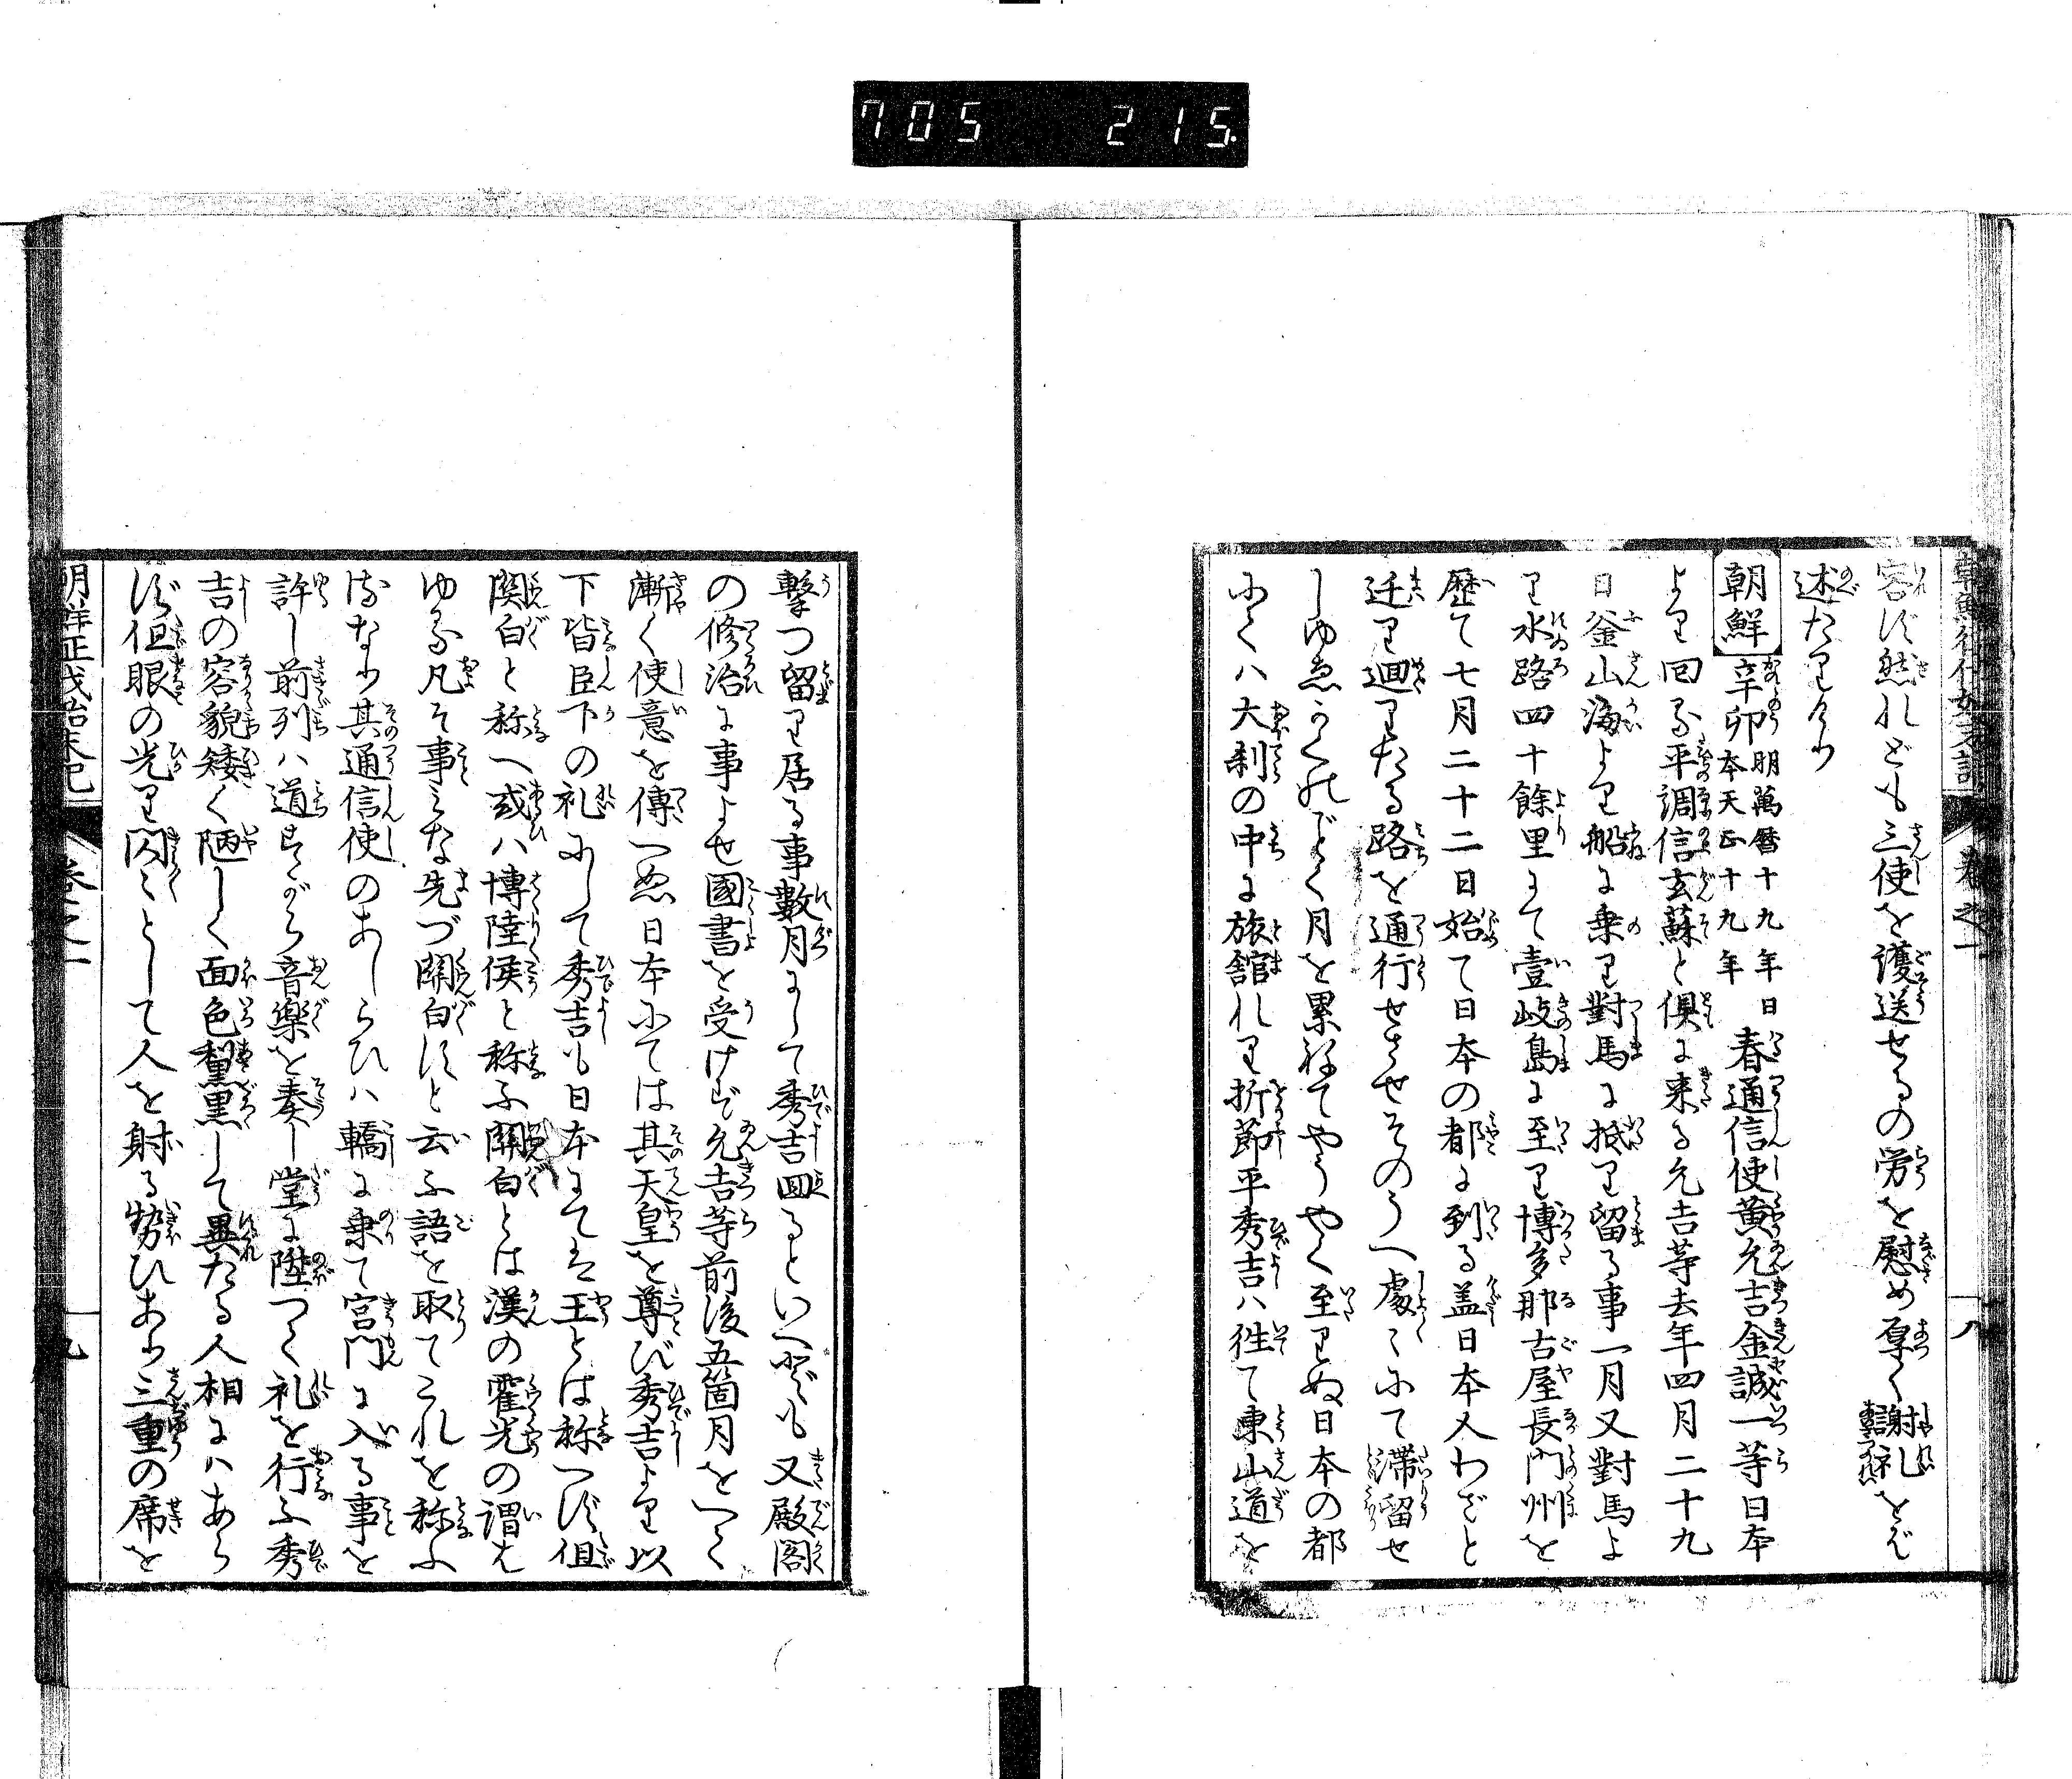 705 215
容ず然れども三使を護送せるの労を慰め厚く謝礼をぞ
述たりけり
朝鮮 辛卯 明萬暦十九年 日本天正十九年 春通信使黄允吉金誠一等日本
より回る平調信玄蘇と倶に来る允吉等去年四月二十九
日釜山海より船に乗り對馬に抵り留る事一月又對馬よ
り水路四十餘里にて壹岐島に至り博多那古屋長門州を
歴て七月二十二日始て日本の都に到る盖日本人わざと
迂り廻りたる路を通行せさせそのうへ處々にて滞留せ
しゆゑかくのごとく月を累ねてやうやく至りぬ日本の都
にてハ大刹の中に旅舘れり折節平秀吉ハ往て東山道を
巻之一
八
撃つ留り居る事數月にして秀吉回るといへども又殿閣
の修治に事よせ國書を受けず允吉等前後五箇月をへて
漸く使意を傳へぬ日本にては其天皇を尊び秀吉より以
下皆臣下の礼にして秀吉も日本にてハ王とは称へず但
関白と称へ或ハ博陸侯と称ふ関白とは漢の霍光の謂は
ゆる凡そ事みな先づ関白すと云ふ語を取てこれを称ふ
るなり其通信使のあしらひハ轎に乗て宮門に入る事を
許し前列ハ道すがら音樂を奏し堂に陞つて礼を行ふ秀
吉の容貌矮く陋しく面色黧黒して異たる人相にハあら
ず但眼の光り閃々として人を射る勢ひあり三重の席を
巻之一
九